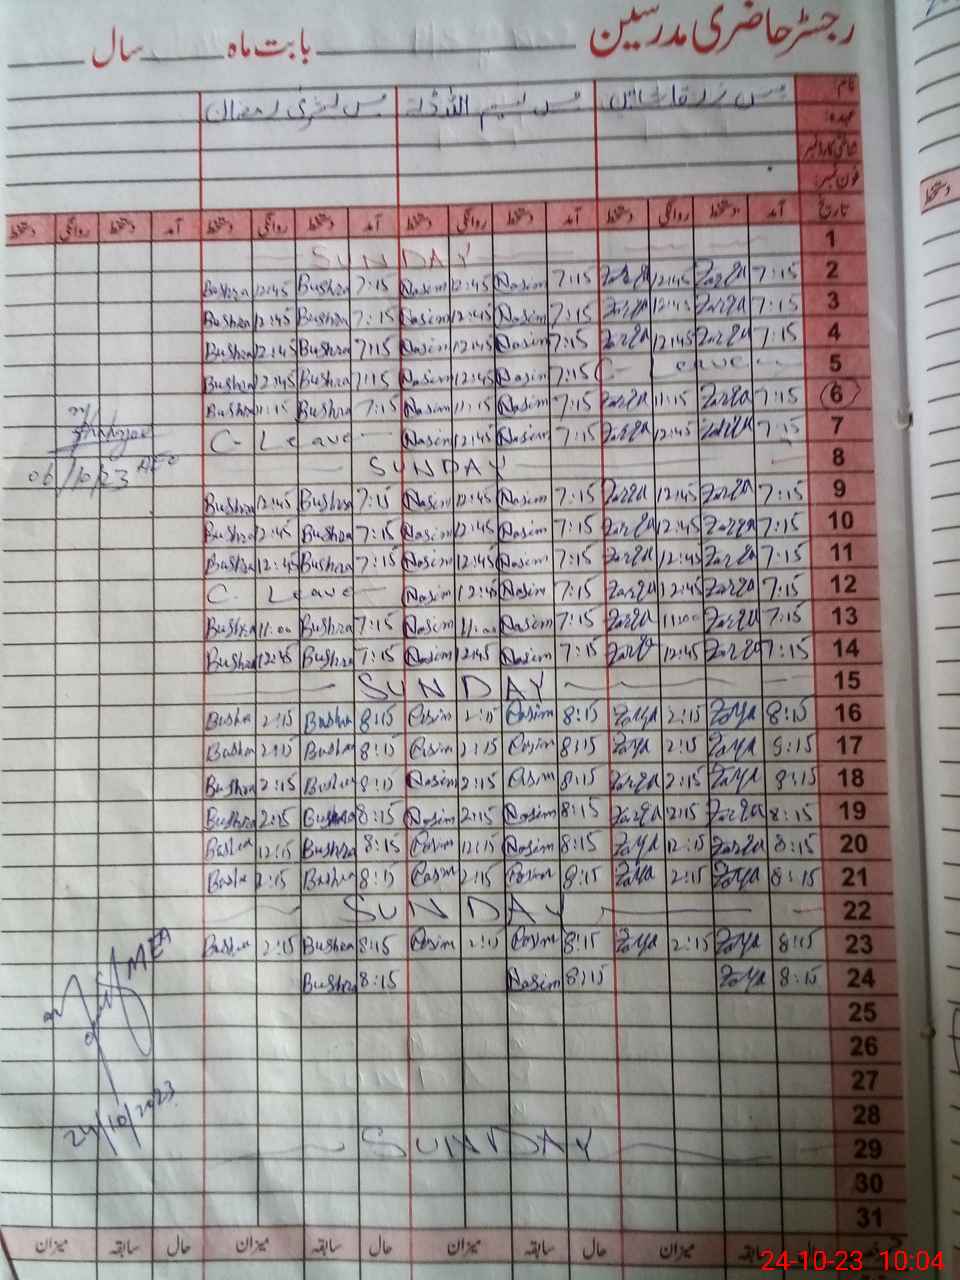 رجسٹر حاضری مدرسین بابت ماہ سال
نام: مس مس نسیم اللہ مس بشریٰ رمضان
عہدہ:
شناختی کارڈ نمبر
فون نمبر:
تاریخ آمد دستخط روانگی دستخط آمد دستخط روانگی دستخط آمد دستخط روانگی دستخط آمد دستخط روانگی دستخط
1 SUNDAY
Bushra 12:45 Bushra 7:15 Nasim 12:45 Nasim 7:15 Zarqa 12:45 Zarqa 7:15 2
Bushra 12:45 Bushra 7:15 Nasim 12:45 Nasim 7:15 Zarqa 12:45 Zarqa 7:15 3
Bushra 12:45 Bushra 7:15 Nasim 12:45 Nasim 7:15 Zarqa 12:45 Zarqa 7:15 4
Bushra 12:45 Bushra 7:15 Nasim 12:45 Nasim 7:15 C- Leave 5
Bushra 11:15 Bushra 7:15 Nasim 11:15 Nasim 7:15 Zarqa 11:15 Zarqa 7:15 6
C- Leave Nasim 12:45 Nasim 7:15 Zarqa 12:45 Zarqa 7:15 7
06/10/23 AEO
SUNDAY 8
Bushra 12:45 Bushra 7:15 Nasim 12:45 Nasim 7:15 Zarqa 12:45 Zarqa 7:15 9
Bushra 12:45 Bushra 7:15 Nasim 12:45 Nasim 7:15 Zarqa 12:45 Zarqa 7:15 10
Bushra 12:45 Bushra 7:15 Nasim 12:45 Nasim 7:15 Zarqa 12:45 Zarqa 7:15 11
C- Leave Nasim 12:45 Nasim 7:15 Zarqa 12:45 Zarqa 7:15 12
Bushra 11:00 Bushra 7:15 Nasim 11:00 Nasim 7:15 Zarqa 11:00 Zarqa 7:15 13
Bushra 12:45 Bushra 7:15 Nasim 12:45 Nasim 7:15 Zarqa 12:45 Zarqa 7:15 14
SUNDAY 15
Bushra 2:15 Bushra 8:15 Nasim 2:15 Nasim 8:15 Zarqa 2:15 Zarqa 8:15 16
Bushra 2:15 Bushra 8:15 Nasim 2:15 Nasim 8:15 Zarqa 2:15 Zarqa 8:15 17
Bushra 2:15 Bushra 8:15 Nasim 2:15 Nasim 8:15 Zarqa 2:15 Zarqa 8:15 18
Bushra 2:15 Bushra 8:15 Nasim 2:15 Nasim 8:15 Zarqa 2:15 Zarqa 8:15 19
Bushra 12:15 Bushra 8:15 Nasim 12:15 Nasim 8:15 Zarqa 12:15 Zarqa 8:15 20
Bushra 2:15 Bushra 8:15 Nasim 2:15 Nasim 8:15 Zarqa 2:15 Zarqa 8:15 21
SUNDAY 22
Bushra 2:15 Bushra 8:15 Nasim 2:15 Nasim 8:15 Zarqa 2:15 Zarqa 8:15 23
Bushra 8:15 Nasim 8:15 Zarqa 8:15 24
MEA
25
26
27
28
24/10/2023
SUNDAY 29
30
31
حال سابقہ میزان حال سابقہ میزان حال سابقہ میزان حال سابقہ میزان
24-10-23 10:04